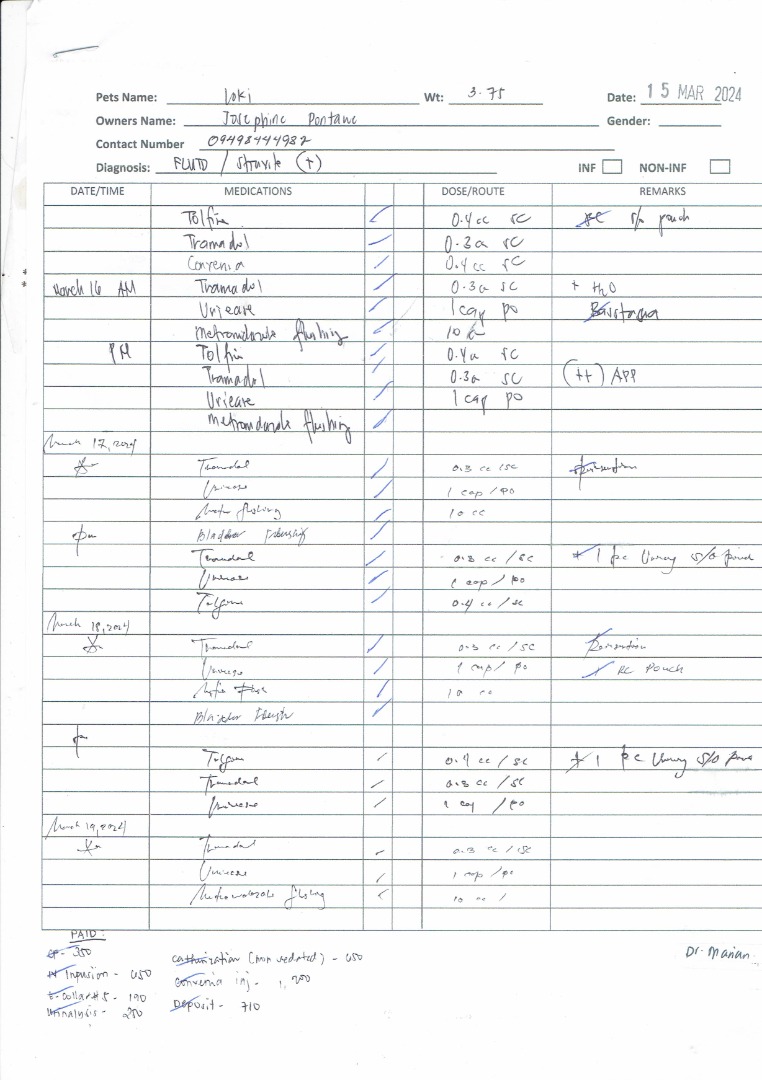 Pets Name: Loki Wt: 3.75 Date: 15 MAR 2024
Owners Name: Josephine Pontane Gender:
Contact Number 09498444982
Diagnosis: FLUTD / Struvite (+) INF NON-INF
DATE/TIME MEDICATIONS DOSE/ROUTE REMARKS
Tolfin 0.4 cc SC s/o pouch
Tramadol 0.3 cc SC
Convenia 0.4 cc SC
March 16 AM Tramadol 0.3 cc SC + H2O
Uricare 1 cap PO
Metronidazole flushing 10 cc
PM Tolfin 0.4 cc SC
Tramadol 0.3 cc SC (++) APP
Uricare 1 cap PO
Metronidazole flushing
March 17, 2024
Am Tramadol 0.3 cc / SC
Uricare 1 cap / PO
Metro flushing 10 cc
pm Bladder
Tramadol 0.3 cc / SC * 1 pc Urinary s/o pouch
Uricare 1 cap / PO
0.4 cc / SC
March 18, 2024
Am Tramadol 0.3 cc / SC
1 cap / PO RC Pouch
10 cc
Bladder
pm
0.4 cc / SC * 1 pc Urinary s/o pouch
Tramadol 0.3 cc / SC
Uricare 1 cap / PO
March 19, 2024
Am Tramadol 0.3 cc / SC
Uricare 1 cap / PO
Metronidazole flushing 10 cc /
PAID:
CF - 350 catherization (non sedated) - 650
IV Infusion - 650 Convenia inj - 1,200
E-Collar #5 - 190 Deposit - 710
Urinalysis - 250
Dr. Marian